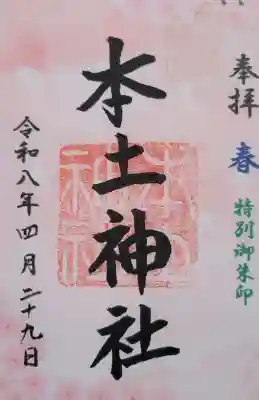 奉拝
春
特別御朱印
本土神社
令和八年四月二十九日